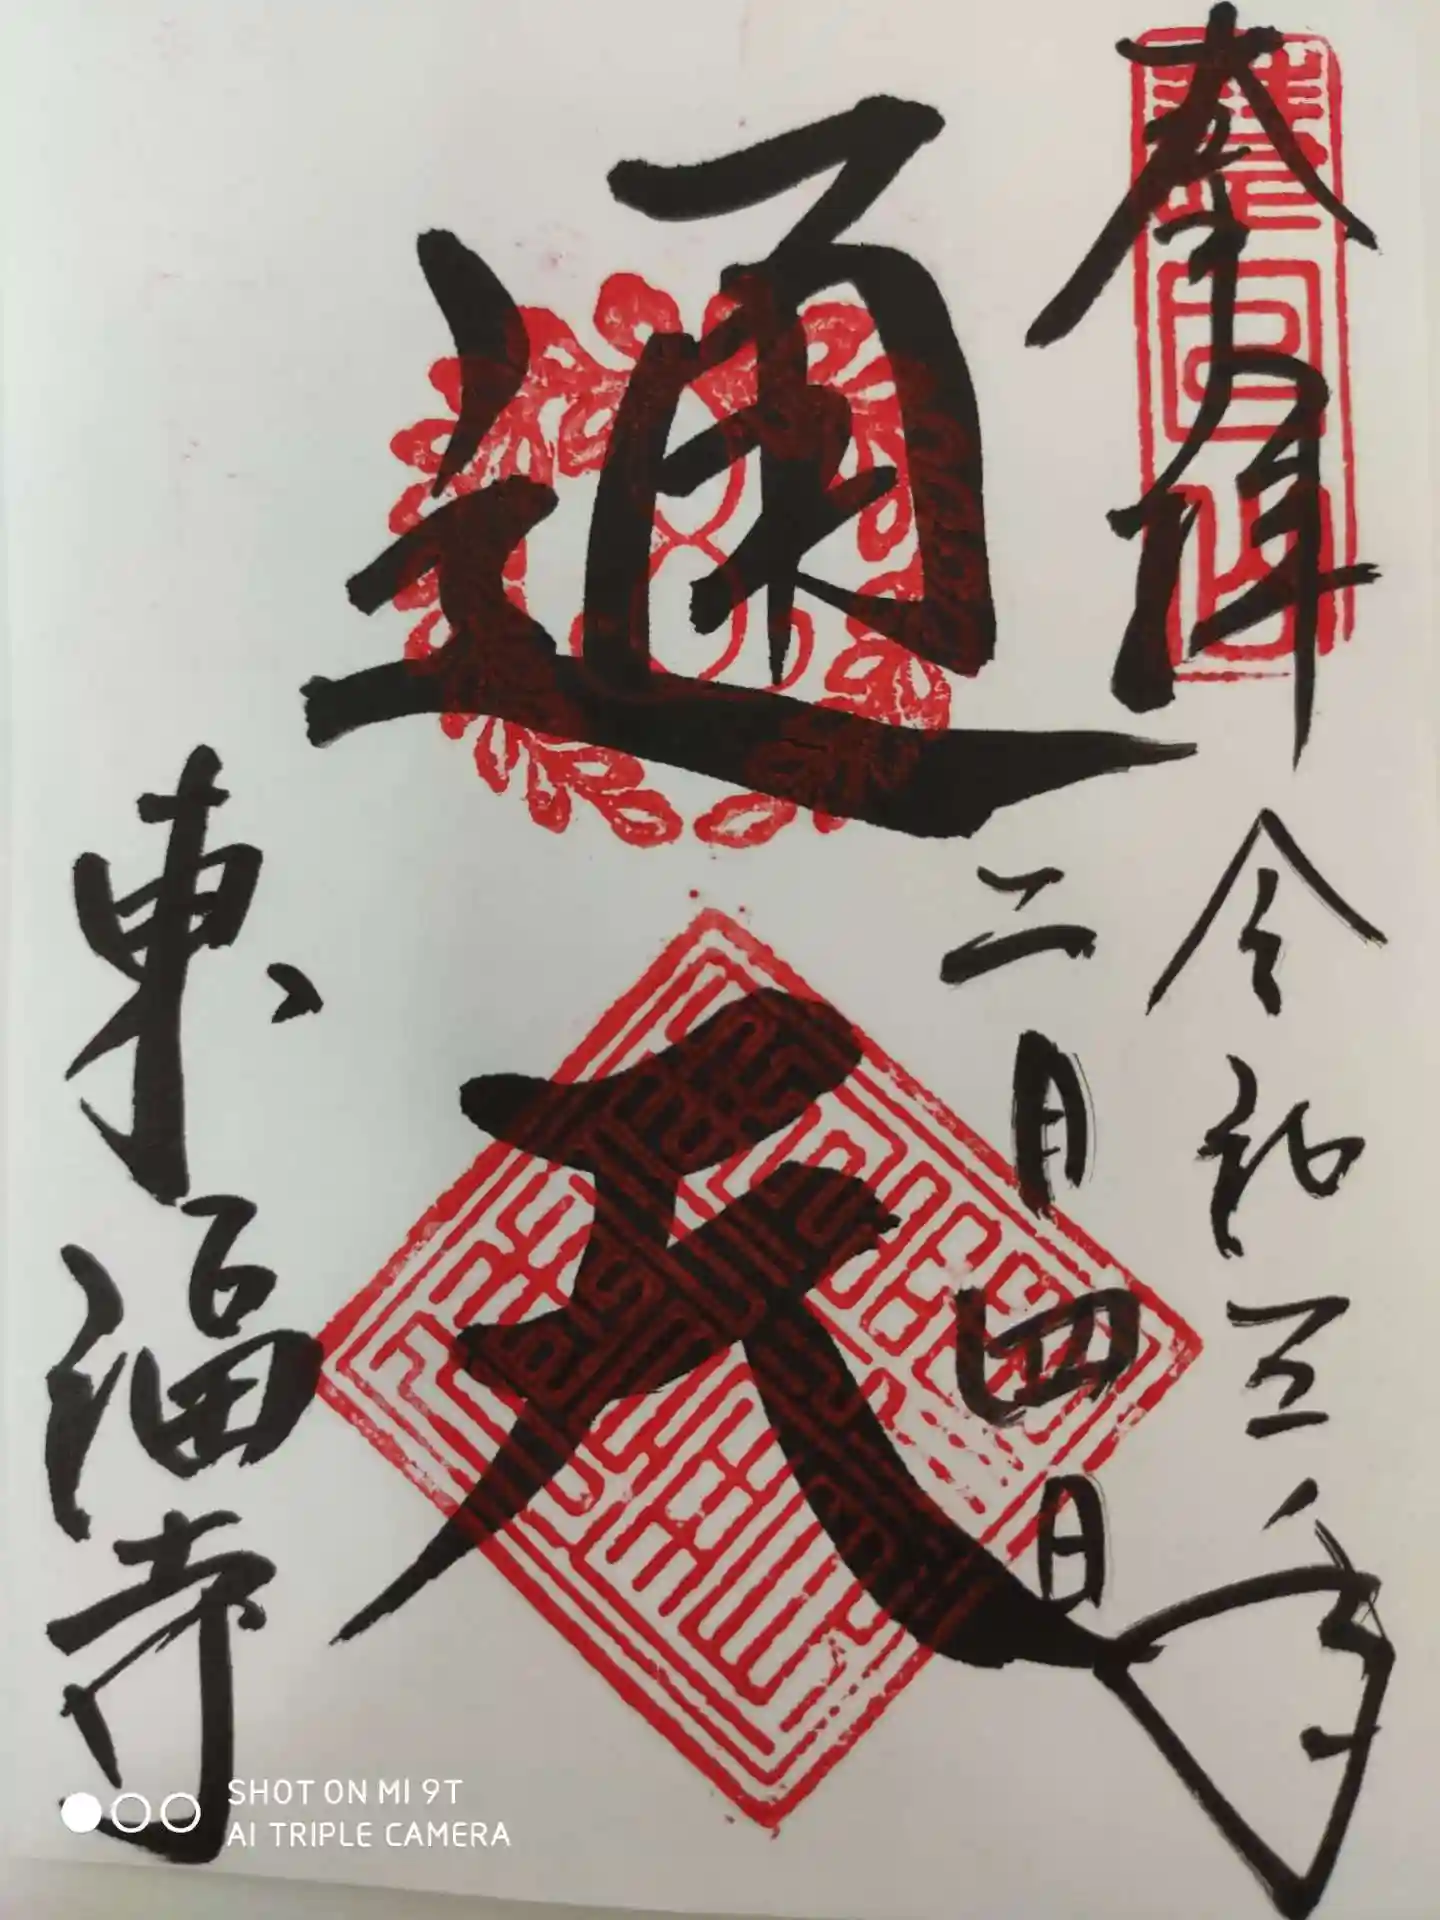 奉拝
令和三年
二月四日
通天
東福寺
SHOT ON MI 9T
AI TRIPLE CAMERA